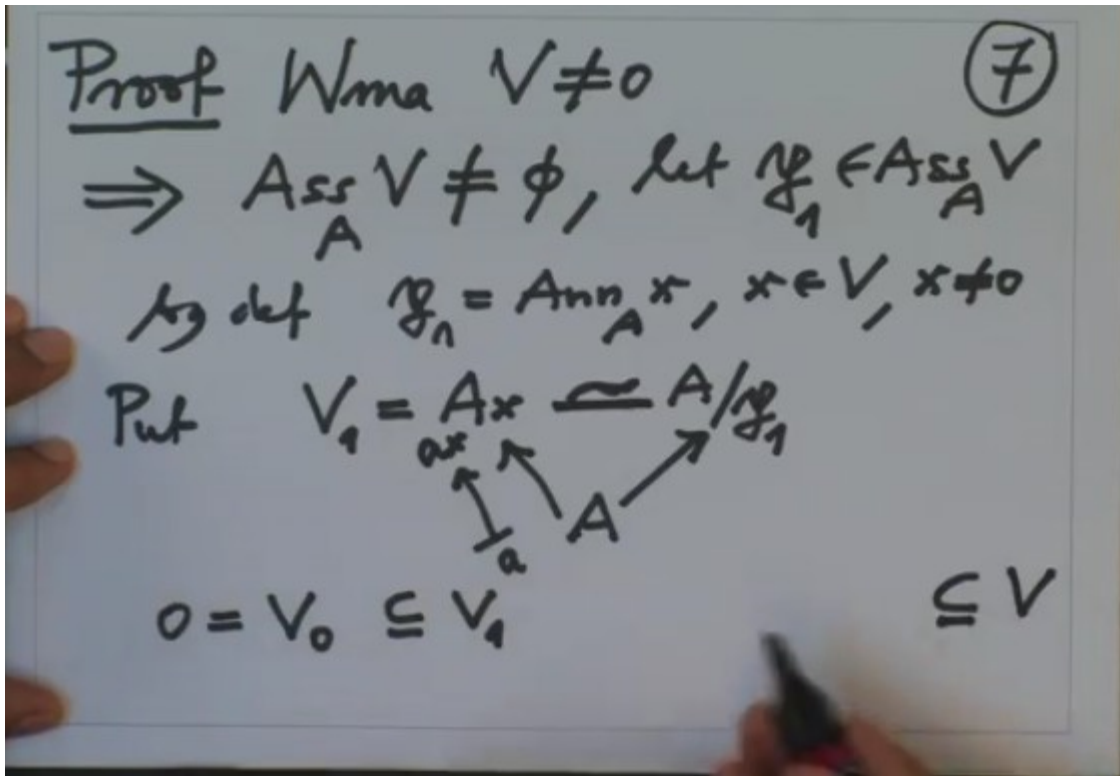 Proof Wma V ≠ 0 ⑦
⇒ Ass_A V ≠ ϕ, let 𝔭_1 ∈ Ass_A V
by def 𝔭_1 = Ann_A x, x ∈ V, x ≠ 0
Put V_1 = Ax ≃ A/𝔭_1
ax
A
a
0 = V_0 ⊆ V_1 ⊆ V